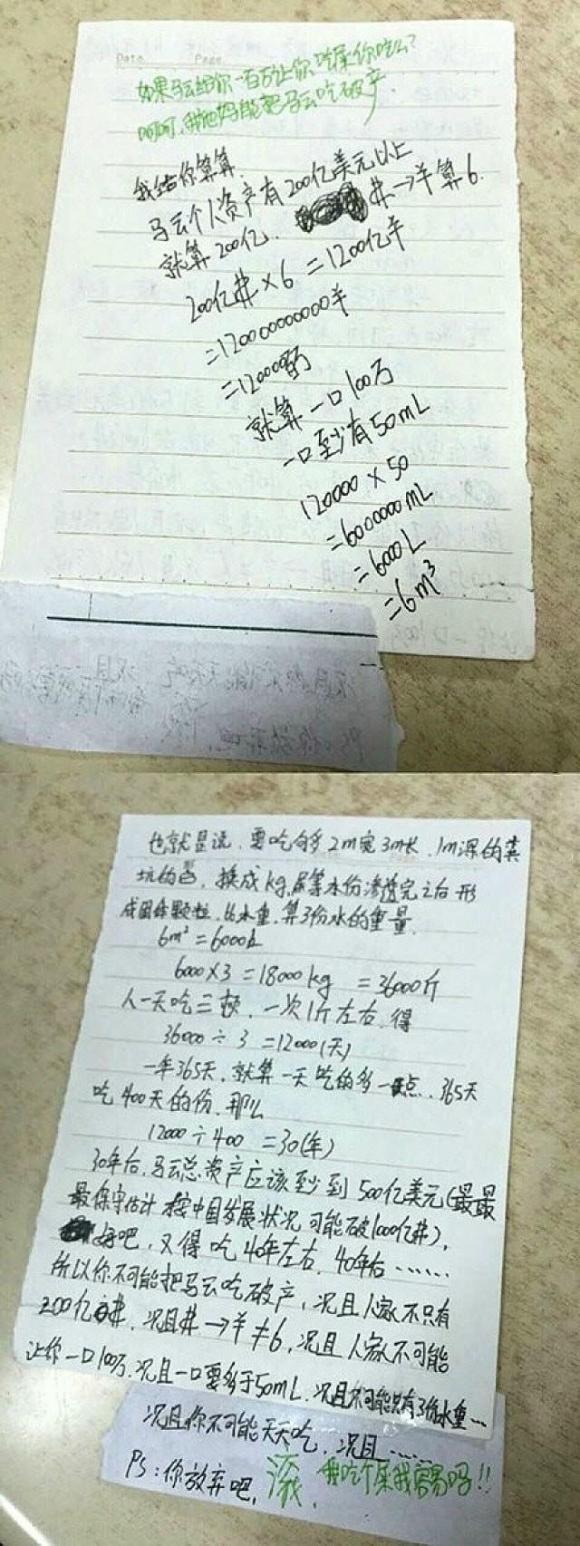 Date Page
如果马云给你一百万让你吃屎你吃么?
呵呵,我他妈能把马云吃破产
我给你算算.
马云个人资产有200亿美元以上
就算200亿. 弗→羊算6.
200亿弗×6=1200亿羊
=120000000000羊
=12000000万
就算一口100万
一口至少有50mL
120000×50
=6000000mL
=6000L
=6m³
也就是说,要吃够多2m宽3m长,1m深的粪
坑的, 换成kg,屎等水份渗透完之后形
成固体颗粒,比水重,算3份水的重量.
6m³=6000L
6000×3=18000kg =36000斤
人一天吃三顿,一次1斤左右,得
36000÷3=12000(天)
一年365天,就算一天吃的多一点,365天
吃400天的份,那么
12000÷400=30(年)
30年后,马云总资产应该至少到500亿美元(最最
最保守估计,按中国发展状况可能破1000亿弗),
好吧,又得吃40年左右,40年后……
所以你不可能把马云吃破产,况且人家不只有
200亿弗,况且弗→羊≠6,况且人家不可能
让你一口100万,况且一口要多于50mL,况且不可能只有3份水重…
况且你不可能天天吃,况且……
PS:你放弃吧. 滚,我吃个屎我容易吗!!